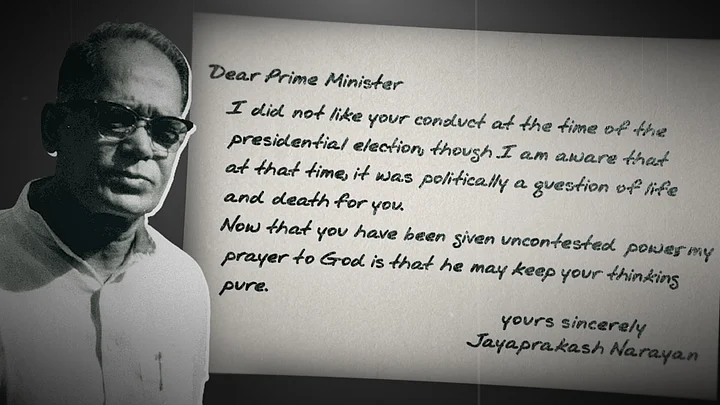 Dear Prime Minister
I did not like your conduct at the time of the
presidential election, though I am aware that
at that time, it was politically a question of life
and death for you.
Now that you have been given uncontested power my
prayer to God is that he may keep your thinking
pure.
yours sincerely
Jayaprakash Narayan